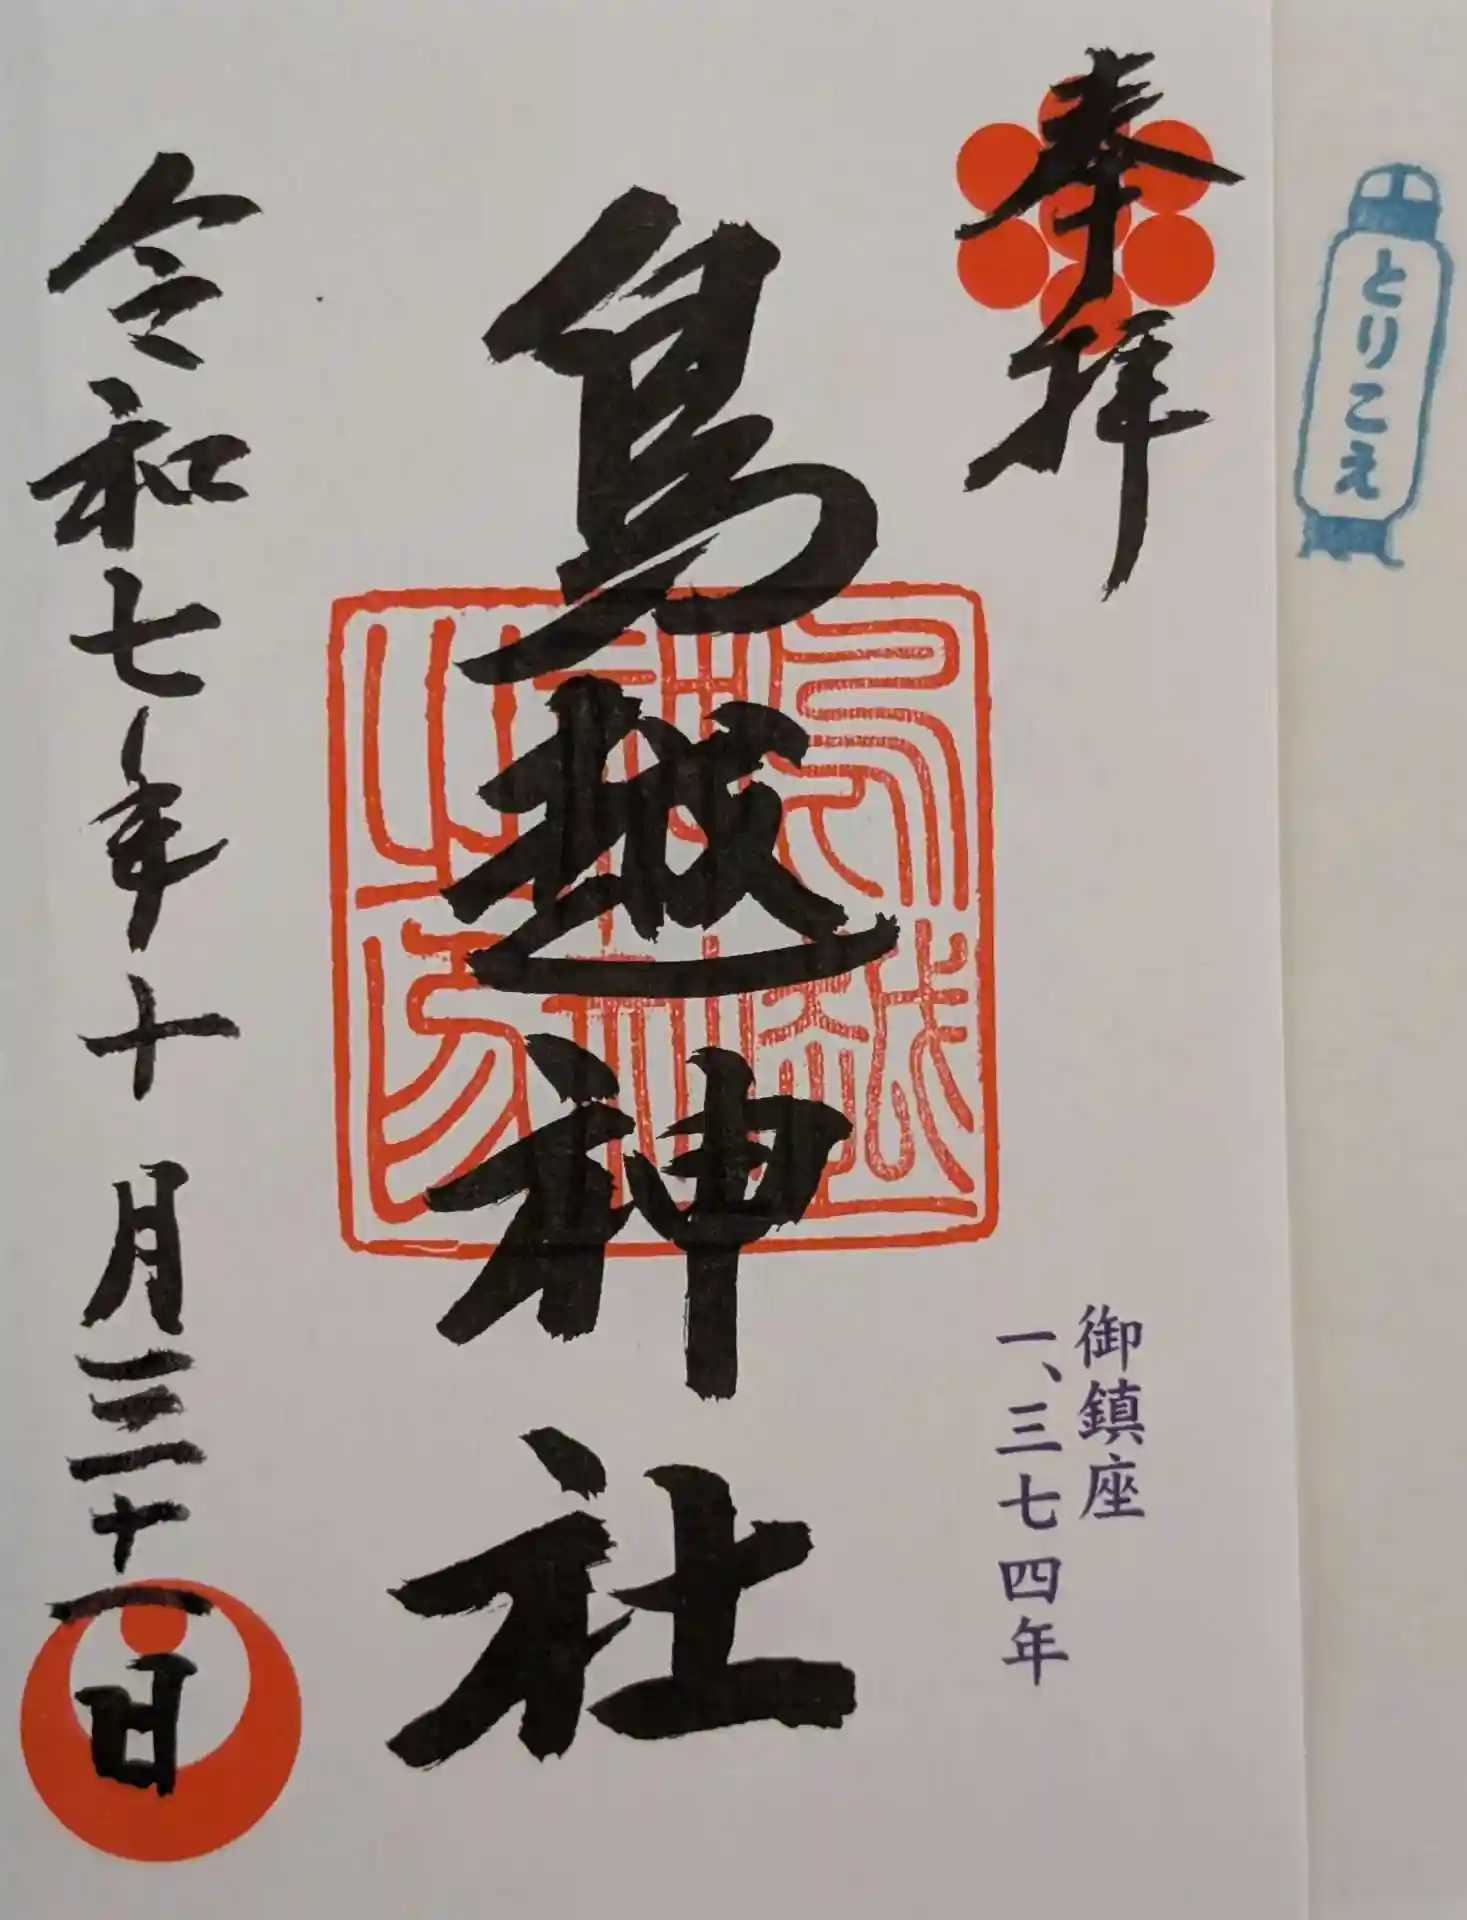 とりこえ
奉拝
御鎮座
一、三七四年
鳥越神社
令和七年十月三十一日